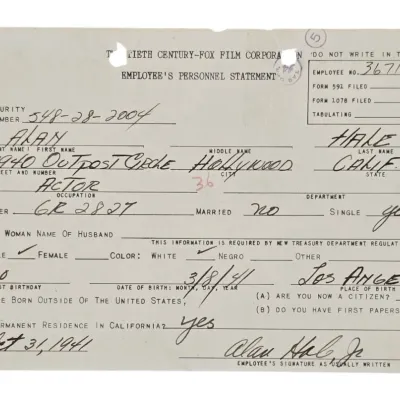 TWENTIETH CENTURY-FOX FILM CORPORATION
EMPLOYEE'S PERSONNEL STATEMENT
5
DO NOT WRITE IN T
EMPLOYEE NO. 3671
FORM 591 FILED
FORM 1078 FILED
TABULATING
URITY
UMBER 548-28-2004
ALAN HALE
NT NAME: FIRST NAME MIDDLE NAME LAST NAME
1940 OUTPOST CIRCLE HOLLYWOOD CALIF.
EET AND NUMBER CITY STATE
ACTOR 36
OCCUPATION DEPARTMENT
ER GR 2827 MARRIED NO SINGLE ye
WOMAN NAME OF HUSBAND
THIS INFORMATION IS REQUIRED BY NEW TREASURY DEPARTMENT REGULAT
✓ FEMALE COLOR: WHITE ✓ NEGRO OTHER
3/8/41 LOS ANGE
DATE OF BIRTH: MONTH, DAY, YEAR PLACE OF BIRTH
E BORN OUTSIDE OF THE UNITED STATES, (A) ARE YOU NOW A CITIZEN?
(B) DO YOU HAVE FIRST PAPERS
RMANENT RESIDENCE IN CALIFORNIA? yes
31, 1941 Alan Hale, Jr
EMPLOYEE'S SIGNATURE AS USUALLY WRITTEN